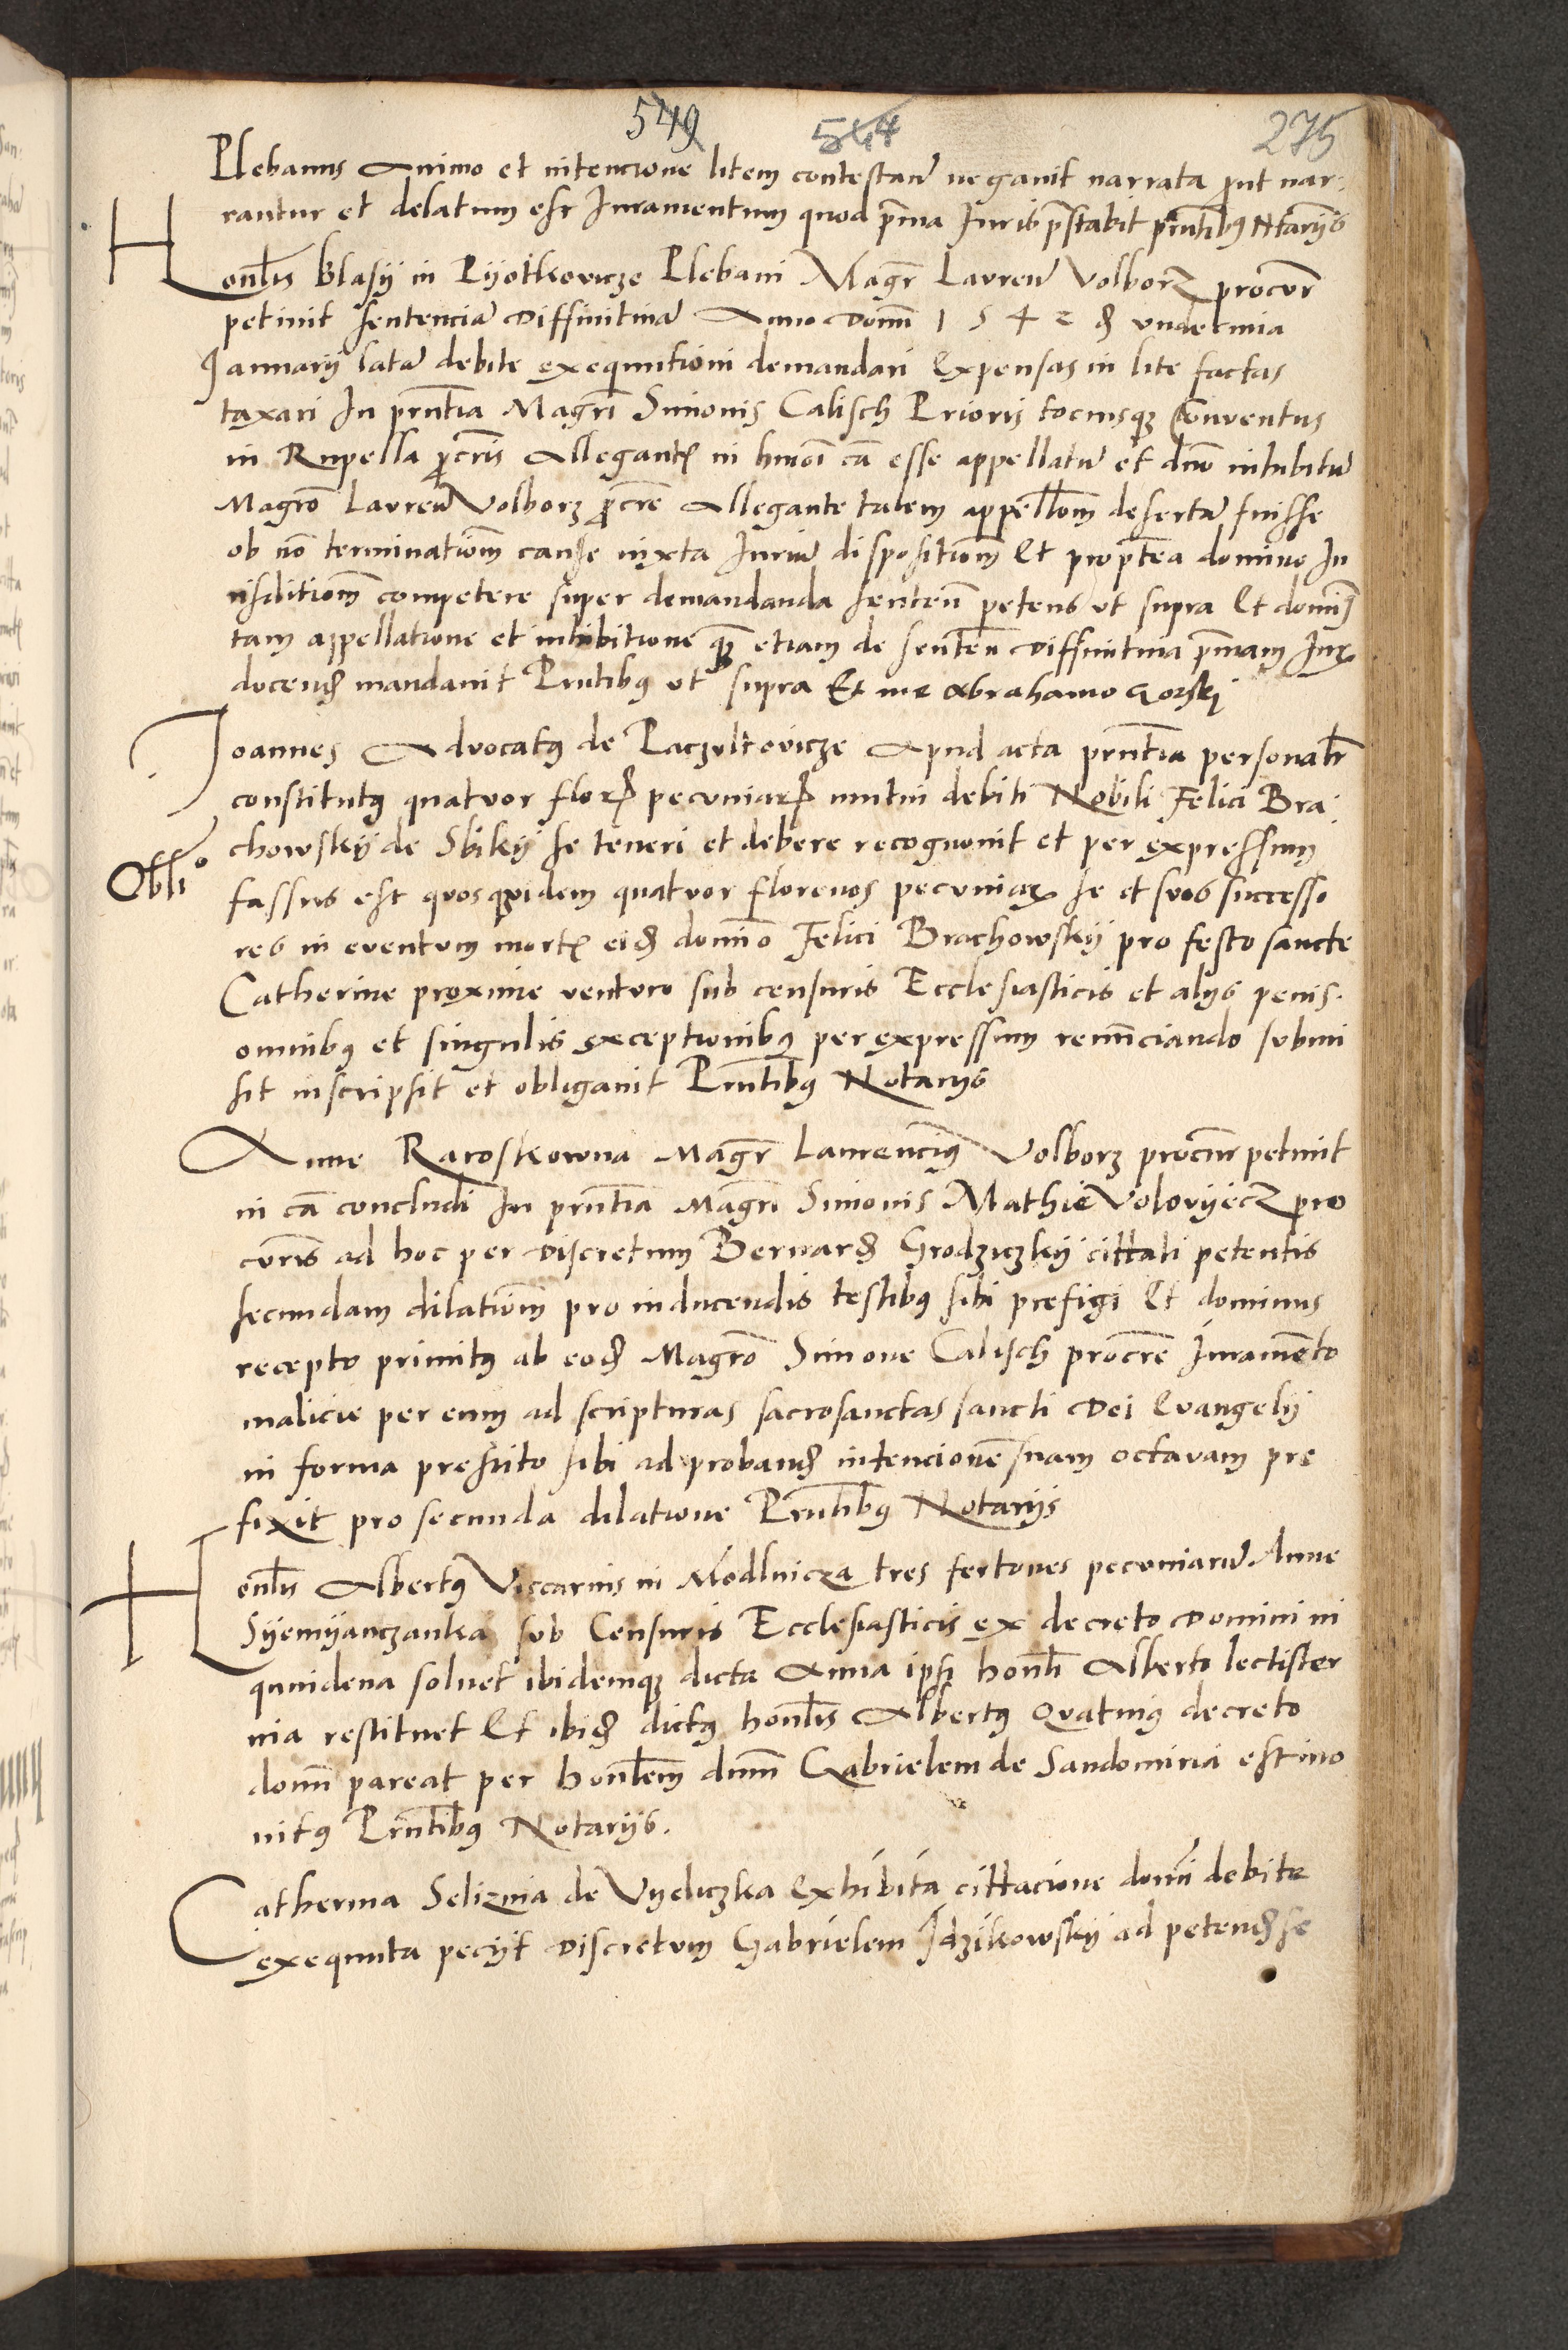 549 544 275
Plebanus animo et intencione litem contestan̄ negavit narrata prout nar-
rantur et delatum est Iuramentum quod p̄ma Iuris p̄stabit p̄ntibus Nt̄ariis
Honlis Blasÿ in Pÿotkovicze Plebani Magr̄ Lavren̄ Volborz procur̄
petivit sentencia̅ diffinitiva̅ Anno Domī 1542 d̄ undecima
Januarÿ lata̅ debite exequutioni demandari Expensas in lite factas
taxari In prn̄tia Magrī Simonis Calisch Prioris tociusq3 Conventus
in Rupella p̄cris allegant̄ in hmōi cā esse appellatu̅ et dn̄o inhibitu̅
Magrō Lavren̄ Volborz p̄cre allegante talem appellōm deserta̅ fuisse
ob nō terminatiōm cause iuxta Iuriu̅ dispositiōm Et propterea domino Iu
risditiōm competere super demandanda senten̄ petens ut supra Et domin9
tam appellatione et inhibitione q3 etiam de senten̄ diffinitiva p̄mam Iur̄
docend̄ mandavit Prn̄tibus ut supra Et me Abrahamo Gorskj
Joannes Advocatus de Paczultovicze Apud acta prn̄tia personalr̄
constitutus quatuor flor̄ pecuniar̄ mutui debiti Nobili Felici Bra-
chowskÿ de Sbikÿ se teneri et debere recognovit et per expressum
Oblio
fassus est quos quidem quatuor florenos pecuniar̄ se et suos successo
res in eventum mort̄ eid̄ domino Felici Brachowskÿ pro festo sancte
Catherine proxime venturo sub censuris Ecclesiasticis et alÿs penis.
omnibus et singulis exceptionibus per expressum renūnciando submi
sit inscripsit et obligavit Prn̄tibus Notariis
Anne Raroskowna Magr̄ Laurencius Volborz procur̄ petivit
in cā concludi In prn̄tia Magrī Simonis Mathie Volovÿecz pro
curis ad hoc per discretum Bernard̄ Grodziczkÿ cittati petentis
secundam dilatiōm pro inducendis testibus sibi prefigi Et dominus
recepto primitus ab eod̄ Magrō Simone Calisch procr̄e Iuramēto
malicie per eum ad scripturas sacrosanctas sancti Dei Evangelÿ
in forma prestito sibi ad proband̄ intencionē suam octavam pre
fixit pro secunda dilatione Prn̄tibus Notariis
Honlis Albertus Viccarius in Modlnicza tres fertones pecuniaru̅ Anne
Sÿemÿanczanka sub Censuris Ecclesiasticis ex decreto Domini in
quindena solvet ibidemq3 dicta Anna ipsi honli Alberto lectister
nia restituet Et ibid̄ dictus honlis Albertus Quatinus decreto
domī pareat per honlem dnm̄ Gabrielem de Sandomiria est mo
nitus Prn̄tibus Notariis.
Catherina Seliznia de Vÿeliczka Exhibita cittacione domī debite
exequuta pecÿt discretum Gabrielem Idzikowskÿ ad petend̄ se